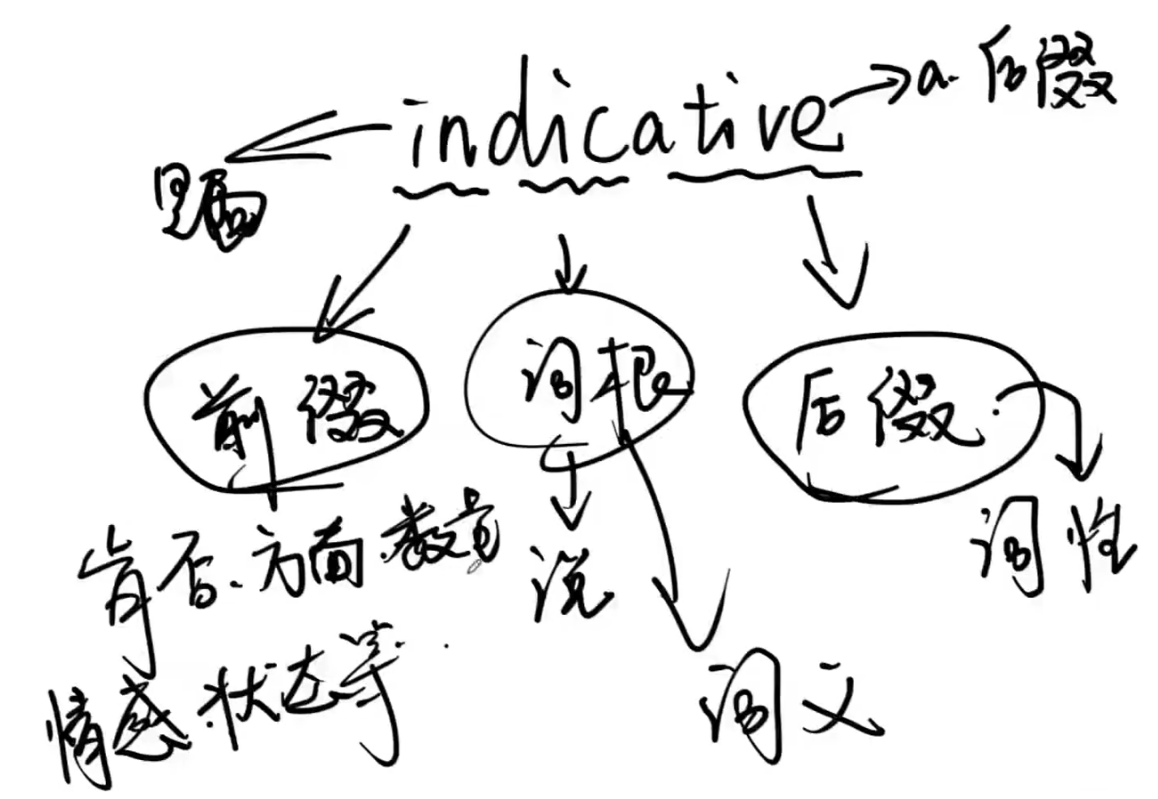 indicative
a. 后缀
里面
前缀
词根
后缀
肯否、方面、数量
情感、状态等
说
词义
词性